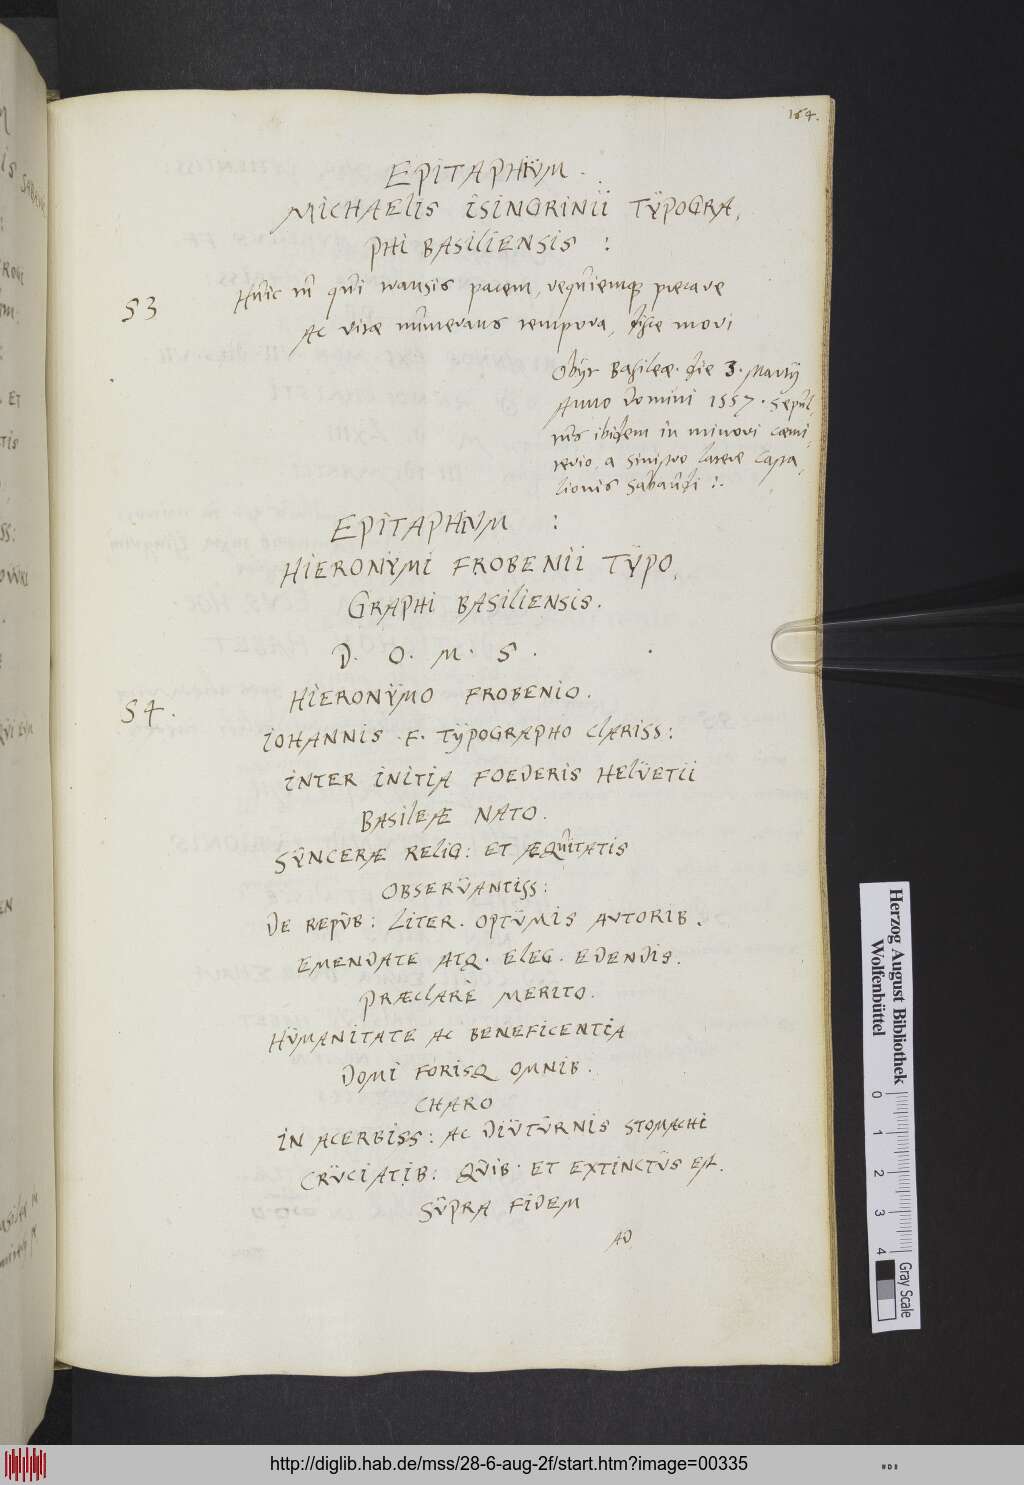 164.
EPITAPHIUM.
MICHAELIS ISINGRINII TŸPOGRA,
PHI BASILIENSIS :
53
Huic tu qui transis pacem, requiemq; precare
Ac vitæ numerans tempora, disce mori
Obijt Basileæ. die 3. Martij
Anno domini 1557. Sepul,
tus ibidem in minori cæmi,
terio, a sinistro latere Casta,
lionis Sabaudi :.
EPITAPHIUM :
HIERONŸMI FROBENII TŸPO,
GRAPHI BASILIENSIS.
D. O. M. S.
54.
HIERONŸMO FROBENIO.
IOHANNIS .F. TŸPOGRAPHO CLARISS:
INTER INITIA FOEDERIS HELVETII
BASILEÆ NATO.
SŸNCERÆ RELIG: ET ÆQUITATIS
OBSERVANTISS:
DE REPUB: LITER. OPTUMIS AVTORIB.
EMENDATE ATQ. ELEG. EDENDIS.
PRÆCLARE MERITO.
HUMANITATE AC BENEFICENTIA
DOMI FORISQ OMNIB.
CHARO
IN ACERBISS: AC DIUTURNIS STOMACHI
CRUCIATIB: QUIB. ET EXTINCTUS EST.
SUPRA FIDEM
AD
Herzog August Bibliothek
Wolfenbüttel
0 1 2 3 4
Gray Scale
http://diglib.hab.de/mss/28-6-aug-2f/start.htm?image=00335